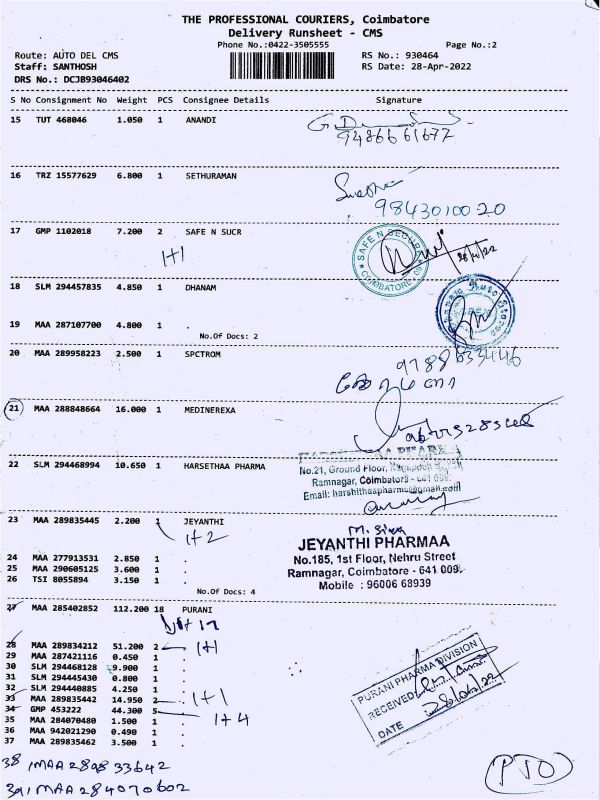 THE PROFESSIONAL COURIERS, Coimbatore
Delivery Runsheet - CMS
Phone No.:0422-3505555
Page No.:2
Route: AUTO DEL CMS
RS No.: 930464
Staff: SANTHOSH
RS Date: 28-Apr-2022
DRS No.: DCJB93046402
S No Consignment No Weight PCS Consignee Details Signature
15 TUT 468046 1.050 1 ANANDI
9486661677
16 TRZ 15577629 6.800 1 SETHURAMAN
9843010020
17 GMP 1102018 7.200 2 SAFE N SUCR
1+1
SAFE N SECURE
COIMBATORE
18 SLM 294457835 4.850 1 DHANAM
19 MAA 287107700 4.800 1 .
No.Of Docs: 2
20 MAA 289958223 2.500 1 SPCTROM
9788633446
21 MAA 288848664 16.000 1 MEDINEREXA
22 SLM 294468994 10.650 1 HARSETHAA PHARMA
No.21, Ground Floor,
Ramnagar, Coimbatore - 641 009.
Email: harshithaapharma@gmail.com
23 MAA 289835445 2.200 1 JEYANTHI
1+2
JEYANTHI PHARMAA
No.185, 1st Floor, Nehru Street
Ramnagar, Coimbatore - 641 009.
Mobile : 96006 68939
24 MAA 277913531 2.850 1 .
25 MAA 290605125 3.600 1 .
26 TSI 8055894 3.150 1 .
No.Of Docs: 4
27 MAA 285402852 112.200 18 PURANI
28 MAA 289834212 51.200 2 . 1+1
29 MAA 287421116 0.450 1 .
30 SLM 294468128 9.900 1 .
31 SLM 294445430 0.800 1 .
32 SLM 294440885 4.250 1 .
33 MAA 289835442 14.950 2 . 1+1
34 GMP 453222 44.300 5 . 1+4
35 MAA 284070480 1.500 1 .
36 MAA 942021290 0.490 1 .
37 MAA 289835462 3.500 1 .
PURANI PHARMA DIVISION
RECEIVED
DATE 28/04/22
38 MAA 289833642
39 MAA 284070602
PTO